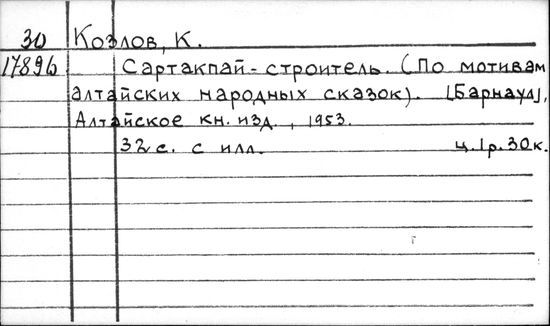 30 Козлов, К.
17896 Сартакпай-строитель. (По мотивам
алтайских народных сказок). [Барнаул],
Алтайское кн. изд., 1953.
32 с. с илл. ц. 1р. 30к.